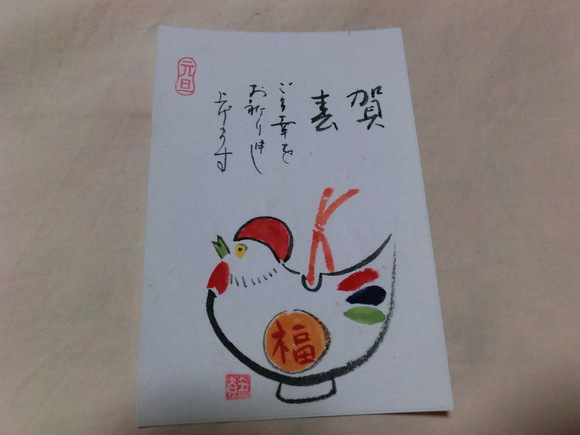 賀
春
ご多幸を
お祈り申し
上げます
元旦
福